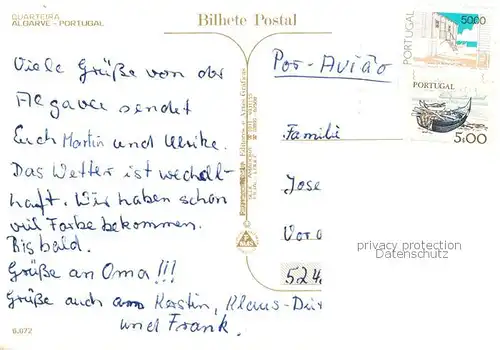 QUARTEIRA
ALGARVE - PORTUGAL
Bilhete Postal
Viele Grüße von der
Algarve sendet
Euch Martin und Ulrike.
Das Wetter ist wechsel-
haft. Wir haben schon
viel Farbe bekommen.
Bis bald.
Grüße an Oma!!!
Grüße auch an Kerstin, Klaus-
und Frank.
6.072
Por-Avião
Familie
Jose
Vor
524
PORTUGAL
5000
PORTUGAL
5.00
privacy protection
Datenschutz